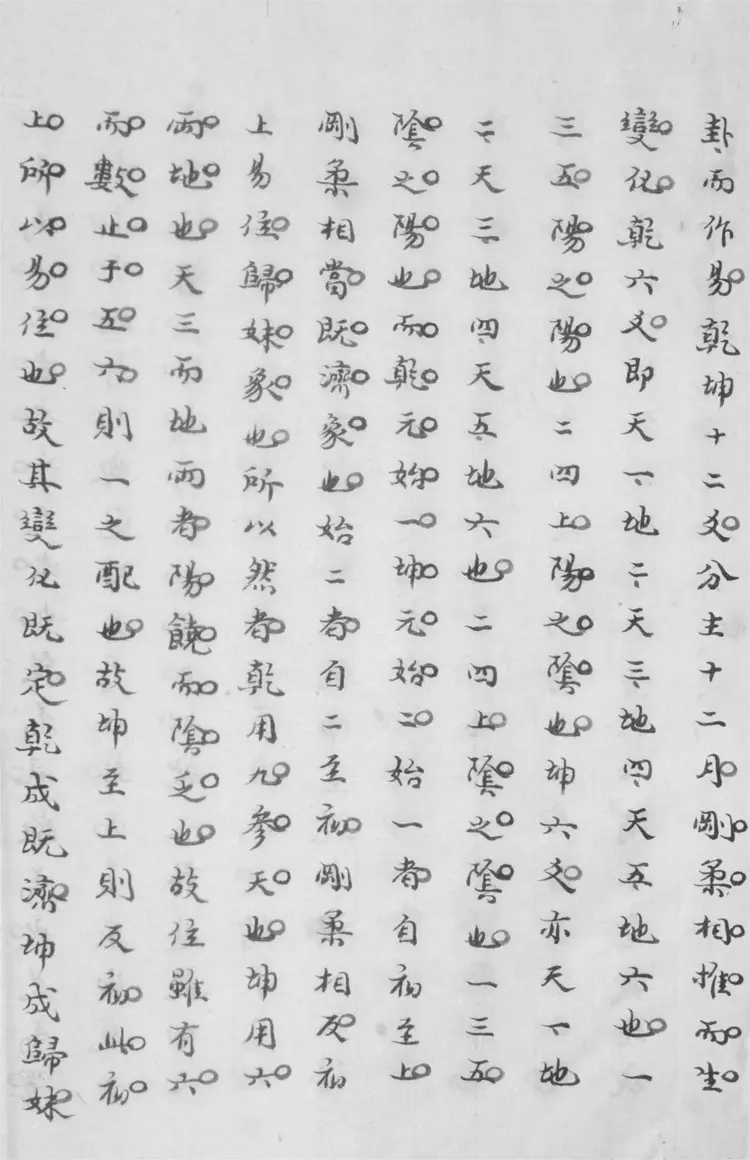 卦而作易乾坤十二爻分主十二月剛柔相推而生
變化乾六爻即天一地二天三地四天五地六也一
三五陽之陽也二四上陽之陰也坤六爻亦天一地
二天三地四天五地六也二四上陰之陰也一三五
陰之陽也而乾元始一坤元始二始一者自初至上
剛柔相當既濟象也始二者自二至初剛柔相反初
上易位歸妹象也所以然者乾用九參天也坤用六
兩地也天三而地兩者陽饒而陰乏也故位雖有六
而數止于五六則一之配也故坤至上則反初此初
上所以易位也故其變化既定乾成既濟坤成歸妹